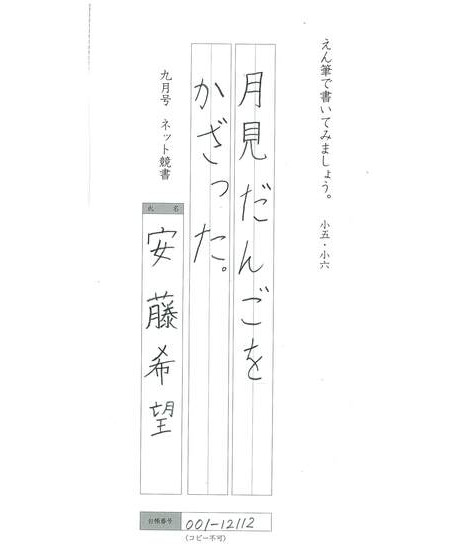 えん筆で書いてみましょう。 小五・小六
月見だんごを
かざった。
九月号 ネット競書
氏 名
安藤希望
台帳番号 001-12112
(コピー不可)